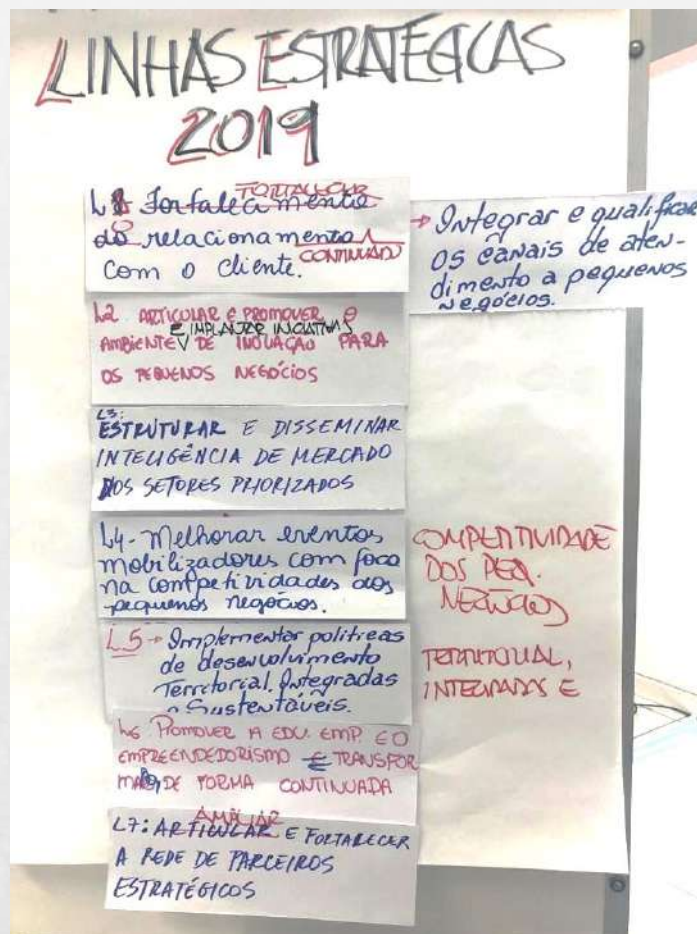 LINHAS ESTRATÉGICAS
2019
FORTALECER
L1 Fortalecimento
do relacionamento
CONTINUADO
com o cliente.
→ Integrar e qualificar
os canais de aten-
dimento a pequenos
negócios.
L2 ARTICULAR E PROMOVER O
E IMPLANTAR INICIATIVAS
AMBIENTE DE INOVAÇÃO PARA
OS PEQUENOS NEGÓCIOS
L3:
ESTRUTURAR E DISSEMINAR
INTELIGÊNCIA DE MERCADO
DOS SETORES PRIORIZADOS
L4- Melhorar eventos
mobilizadores com foco
na competividades dos
pequenos negócios.
COMPETITIVIDADE
DOS PEQ.
NEGÓCIOS
L5→ Implementar políticas
de desenvolvimento
Territorial, Integradas
e Sustentáveis.
TERRITORIAL,
INTEGRADAS E
L6 PROMOVER A EDU. EMP. E O
EMPREENDEDORISMO E TRANSFOR
DE FORMA CONTINUADA
AMPLIAR
L7: ARTICULAR E FORTALECER
A REDE DE PARCEIROS
ESTRATÉGICOS